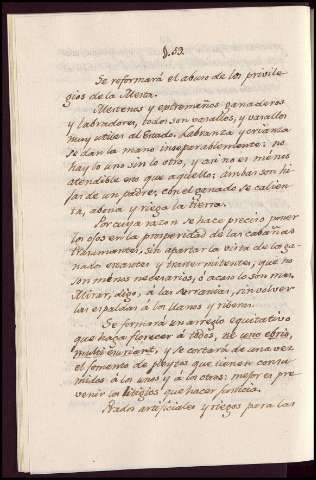 §. 53.
Se reformará el abuso de los privile-
gios de la Mesta.
Mesteños y extremeños ganaderos
y labradores, todos son vasallos, y vasallos
muy utiles al Estado. Labranza y crianza
se dan la mano inseparablemente: no
hay lo uno sin lo otro, y asi no es menos
atendible esto que aquello: ambas son hi-
jas de un padre; con el ganado se calien-
ta, abona y riega la tierra.
Por cuya razon se hace preciso poner
los ojos en la prosperidad de las cabañas
transumantes, sin apartar la vista de la ga-
nado estantes y transtermitentes, que no
son menos necesarios, ó acaso lo son mas.
Mirar, digo, á las serranias, sin volver
las espaldas á los llanos y riberas.
Se formará un arreglo equitativo
que haga florecer á todos, ne uno ebrio,
multi esuriene, y se cortará de una vez
el fomento de pleytos que tienen consu-
midos á los unos y á los otros: mejor es pre-
venir los litigios que hacer justicia.
Prados artificiales y riegos para las